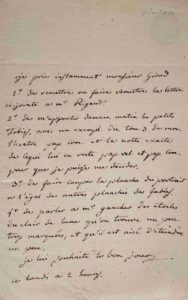 je prie instamment monsieur Girod
1° de remettre ou faire remettre la lettre
ci-jointe a mr Rigaud
2° de m'apporter demain matin les petits
fables, avec un exempl. du tom 3 de mon
theatre pap. com. et la note exacte
des legui tai en reste pap vel et pap com.
pour que je puisse me decider.
3° de faire couper la planche du portrait
a l'égal des autres planches des fables.
4° de parler a mr gaucher des étoiles
du clair de lune qu'on trouve un peu
trop marquées, et qu'il est aisé d'éteindre
un peu.
je lui souhaite le bon jour,
ce lundi a 2 heures.